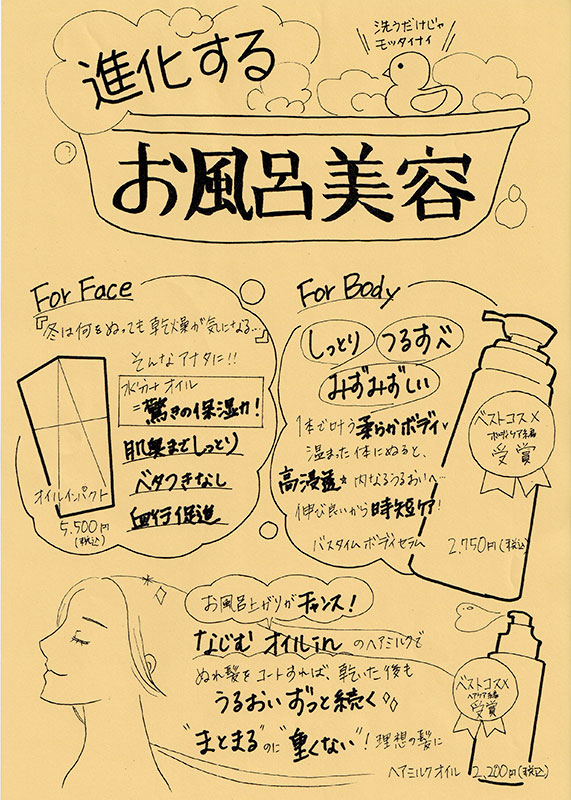 進化する
洗うだけじゃ
モッタイナイ
お風呂美容
For Face
『冬は何をぬっても乾燥が気になる…』
そんなアナタに!!
水分+オイル
=驚きの保湿力!
肌奥までしっとり
ベタつきなし
血行促進
オイルインパクト
5,500円
(税込)
For Body
しっとり
つるすべ
みずみずしい
1本で叶う柔らかボディ
温まった体にぬると、
高浸透☆内なるうるおいへ…
伸び良いから時短ケア!
バスタイムボディセラム
2,750円(税込)
ベストコスメ
ボディケア部門
受賞
お風呂上がりがチャンス!
なじむオイルinのヘアミルクで
ぬれ髪をコートすれば、乾いた後も
うるおいずっと続く
"まとまる"のに"重くない"!理想の髪に
ヘアミルクオイル 2,200円(税込)
ベストコスメ
ヘアケア部門
受賞